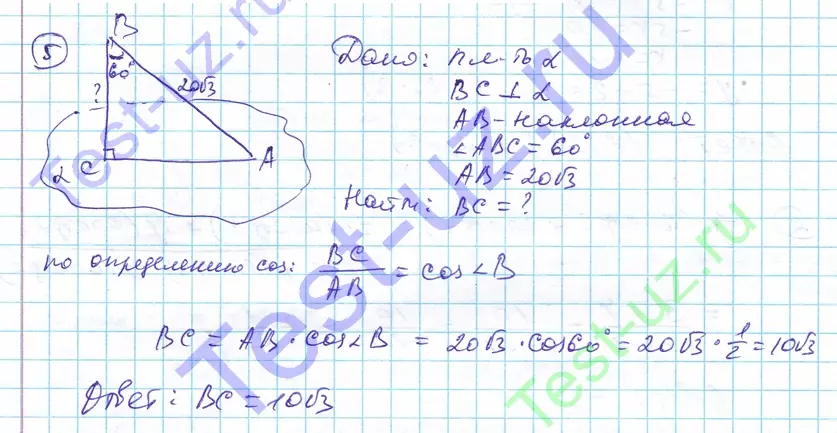 5
B
60°
20√3
?
α
C
A
Дано: пл-ть α
BC ⊥ α
AB - наклонная
∠ABC = 60°
AB = 20√3
Найти: BC = ?
по определению cos: BC/AB = cos∠B
BC = AB · cos∠B = 20√3 · cos60° = 20√3 · 1/2 = 10√3
Ответ: BC = 10√3
Test-uz.ru
Test-uz.ru
Test-uz.ru